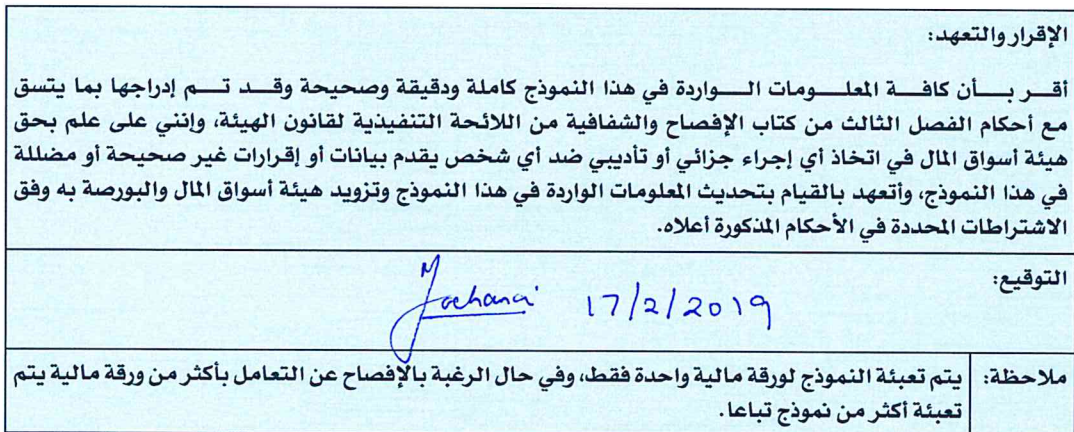 الإقرار والتعهد:
أقر بأن كافة المعلومات الواردة في هذا النموذج كاملة ودقيقة وصحيحة وقد تم إدراجها بما يتسق
مع أحكام الفصل الثالث من كتاب الإفصاح والشفافية من اللائحة التنفيذية لقانون الهيئة، وإنني على علم بحق
هيئة أسواق المال في اتخاذ أي إجراء جزائي أو تأديبي ضد أي شخص يقدم بيانات أو إقرارات غير صحيحة أو مضللة
في هذا النموذج، وأتعهد بالقيام بتحديث المعلومات الواردة في هذا النموذج وتزويد هيئة أسواق المال والبورصة به وفق
الاشتراطات المحددة في الأحكام المذكورة أعلاه.
التوقيع:
17/2/2019
ملاحظة: يتم تعبئة النموذج لورقة مالية واحدة فقط، وفي حال الرغبة بالإفصاح عن التعامل بأكثر من ورقة مالية يتم
تعبئة أكثر من نموذج تباعا.